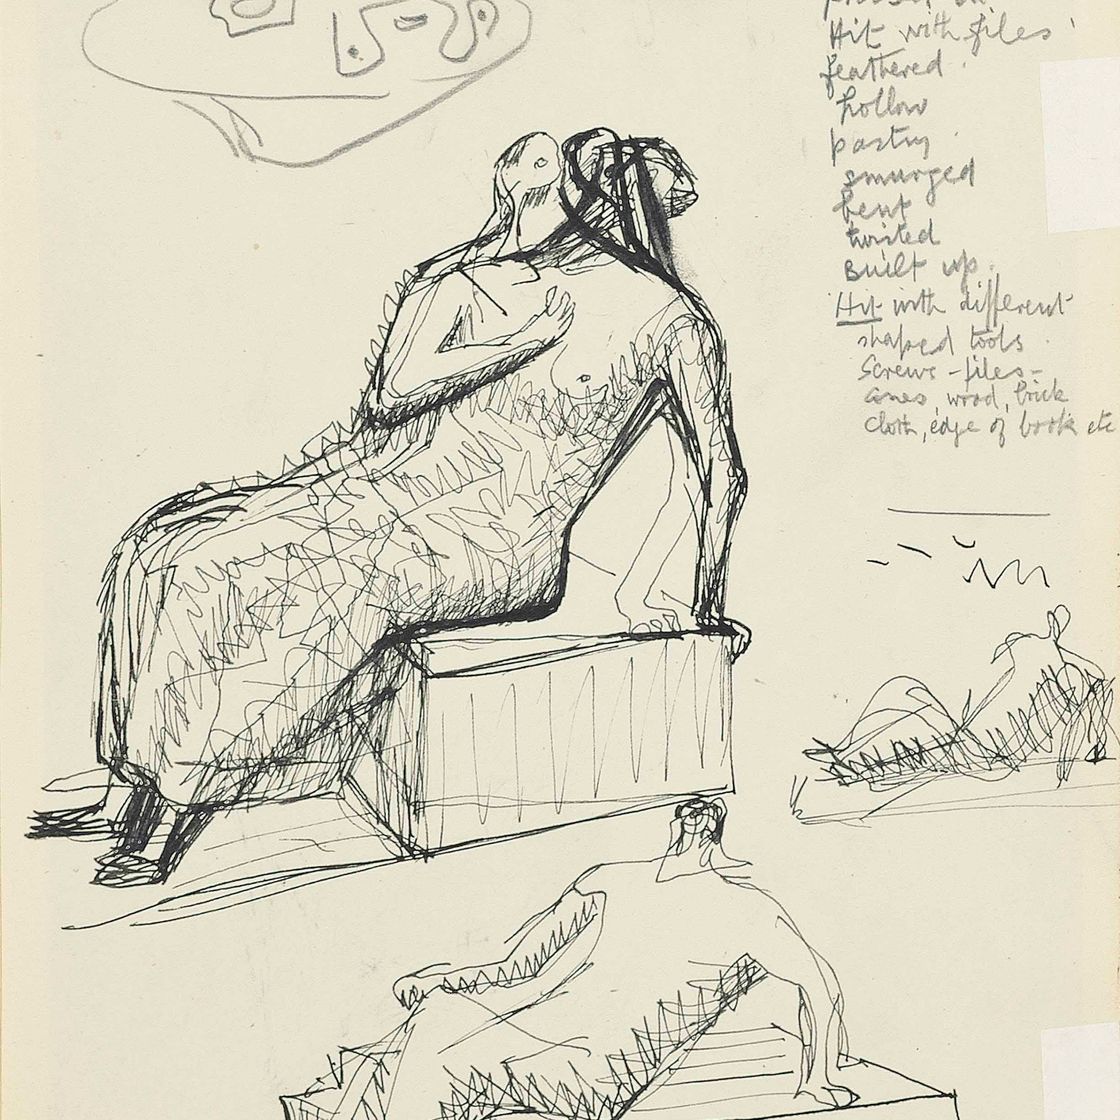 Hit with files
feathered.
hollow
pastry
smurged
bent
twisted
Built up.
Hit with different
shaped tools
Screws - files -
wood, brick
Cloth, edge of book etc